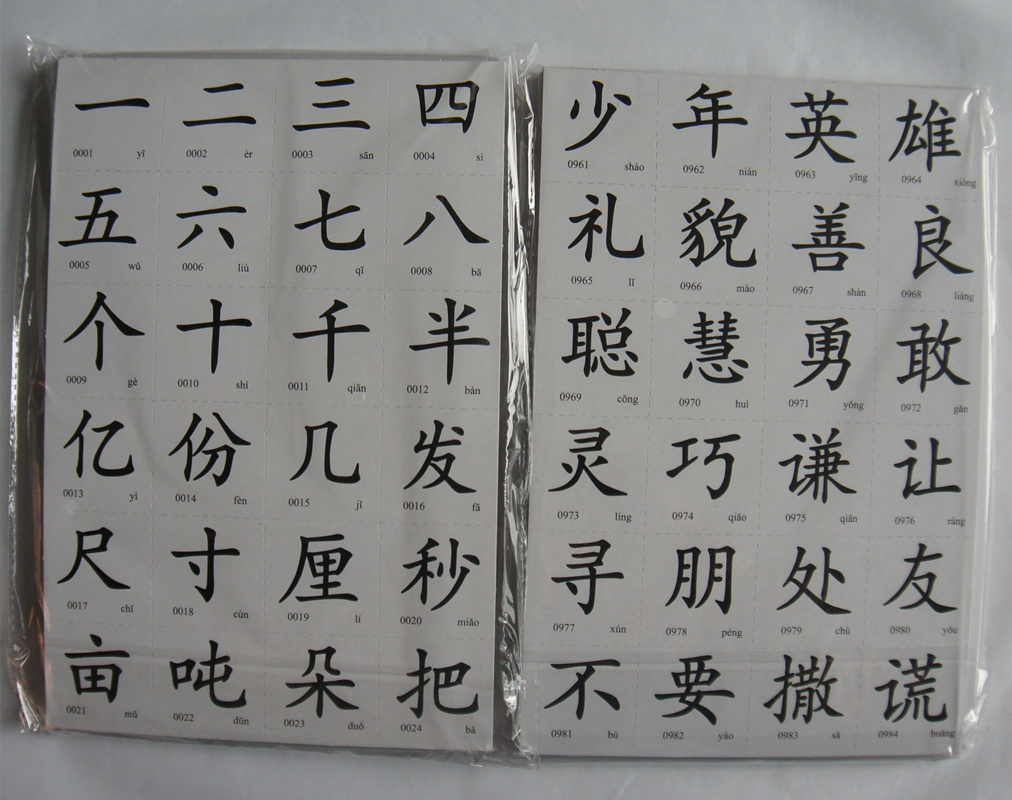 一 二 三 四
0001 yī 0002 èr 0003 sān 0004 sì
五 六 七 八
0005 wǔ 0006 liù 0007 qī 0008 bā
个 十 千 半
0009 gè 0010 shí 0011 qiān 0012 bàn
亿 份 几 发
0013 yì 0014 fèn 0015 jǐ 0016 fā
尺 寸 厘 秒
0017 chǐ 0018 cùn 0019 lí 0020 miǎo
亩 吨 朵 把
0021 mǔ 0022 dūn 0023 duǒ 0024 bǎ
少 年 英 雄
0961 shào 0962 nián 0963 yīng 0964 xióng
礼 貌 善 良
0965 lǐ 0966 mào 0967 shàn 0968 liáng
聪 慧 勇 敢
0969 cōng 0970 huì 0971 yǒng 0972 gǎn
灵 巧 谦 让
0973 líng 0974 qiǎo 0975 qiān 0976 ràng
寻 朋 处 友
0977 xún 0978 péng 0979 chù 0980 yǒu
不 要 撒 谎
0981 bú 0982 yào 0983 sā 0984 huǎng